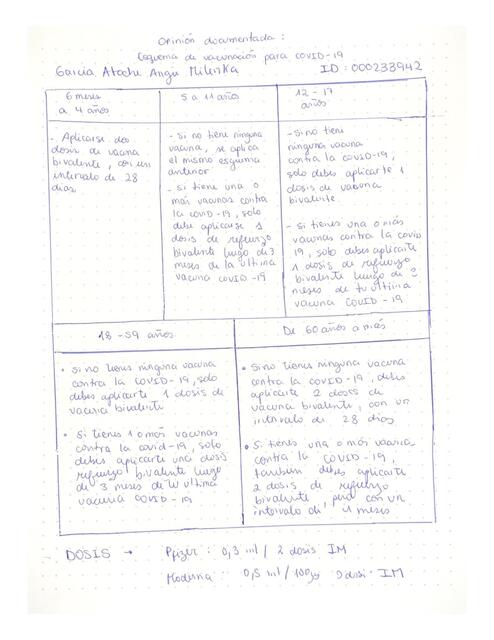 Opinión documentada :
Esquema de vacunación para COVID-19
García Atoche Angie Milenka ID : 000233942
6 meses
a 4 años
- Aplicarse dos
dosis de vacuna
bivalente, con un
intervalo de 28
dias.
5 a 11 años
- Si no tiene ninguna
vacuna, se aplica
el mismo esquema
anterior
- Si tiene una o
más vacunas contra
la covid-19, solo
debe aplicarse 1
dosis de refuerzo
bivalente luego de 3
meses de la ultima
vacuna covid-19
12 - 17
años
- Si no tiene
ninguna vacuna
contra la covid-19,
solo debes aplicarte 1
dosis de vacuna
bivalente.
- Si tienes una o más
vacunas contra la covid
19, solo debes aplicarte
1 dosis de refuerzo
bivalente luego de
meses de tu ultima
vacuna COVID-19
18 - 59 años
• Si no tienes ninguna vacuna
contra la COVID-19, solo
debes aplicarte 1 dosis de
vacuna bivalente
• Si tienes 1 o más vacunas
contra la covid-19, solo
debes aplicarte una dosis
refuerzo bivalente luego
de 3 meses de tu ultima
vacuna COVID-19
De 60 años a más
• Si no tienes ninguna vacuna
contra la COVID-19, debes
aplicarte 2 dosis de
vacuna bivalente, con un
intervalo de 28 dias
• Si tienes una o más vacuna
contra la COVID-19,
tambien debes aplicarte
2 dosis de refuerzo
bivalente, pero con un
intervalo de 4 meses
DOSIS → Pfizer : 0,3 ml / 2 dosis IM
Moderna : 0,5 ml / 100 dosis IM